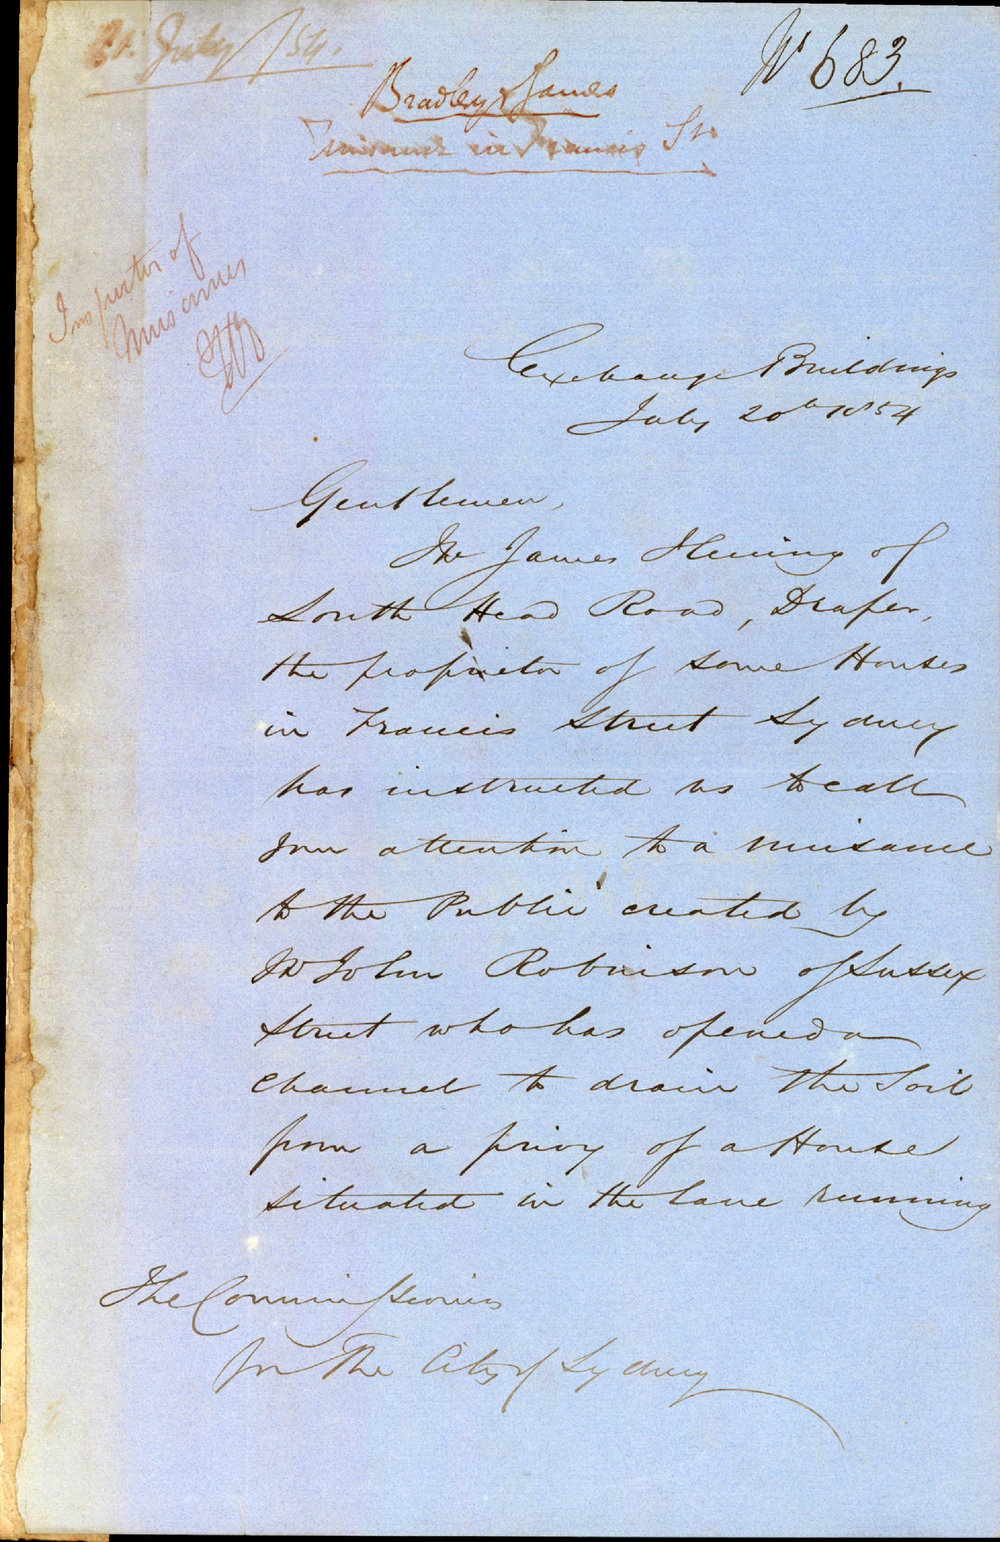 21. July /54.
No 683.
Bradley & James
Nuisance in Francis St.
Inspector of
Nuisances
Exchange Buildings
July 20th 1854
Gentlemen,
Mr James Fleming of
South Head Road, Draper,
the proprietor of some Houses
in Francis Street Sydney
has instructed us to call
your attention to a nuisance
to the Public created by
Mr John Robinson of Sussex
Street who has opened a
channel to drain the soil
from a privy of a House
situated in the lane running
The Commissioners
for the City of Sydney